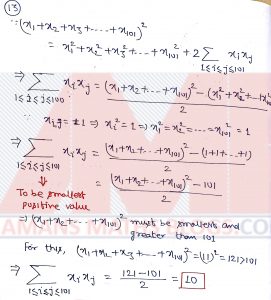 (13)
∵ (x₁+x₂+x₃+-----+x₁₀₁)²
= x₁²+x₂²+x₃²+----+x₁₀₁² + 2 ∑ xᵢxⱼ
1≤i<j≤101
⇒ ∑ xᵢxⱼ = (x₁+x₂+----+x₁₀₁)² - (x₁²+x₂²+---+x₁₀₁²)
1≤i<j≤100 2
∵ xᵢ = ±1 ⇒ xᵢ² = 1 ⇒ x₁² = x₂² = ---- = x₁₀₁² = 1
⇒ ∑ xᵢxⱼ = (x₁+x₂+----+x₁₀₁)² - (1+1+---+1)
1≤i<j≤101 2
⇓ = (x₁+x₂+---+x₁₀₁)² - 101
To be smallest 2
positive value
⇒ (x₁+x₂+----+x₁₀₁)² must be smallest and
greater than 101
For this, (x₁+x₂+x₃+----+x₁₀₁)² = (11)² = 121>101
⇒ ∑ xᵢxⱼ = 121-101 = 10
1≤i<j≤101 2